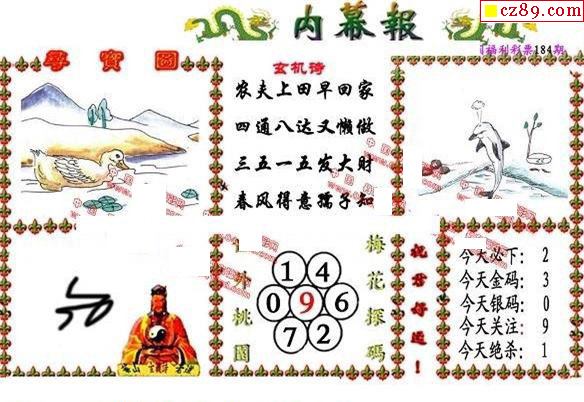 cz89.com
内幕報
福利彩票184期
尋寶圖
玄机诗
农夫上田早回家
四通八达又懒做
三五一五发大财
春风得意孺子知
外桃園
梅花探碼
祝君好运!
1 4
0 9 6
7 2
今天必下: 2
今天金码: 3
今天银码: 0
今天关注: 9
今天绝杀: 1